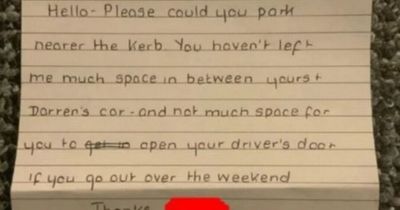 Hello - Please could you park
nearer the kerb. You haven't left
me much space in between yours +
Darren's car - and not much space for
you to get in open your driver's door
if you go out over the weekend
Thanks